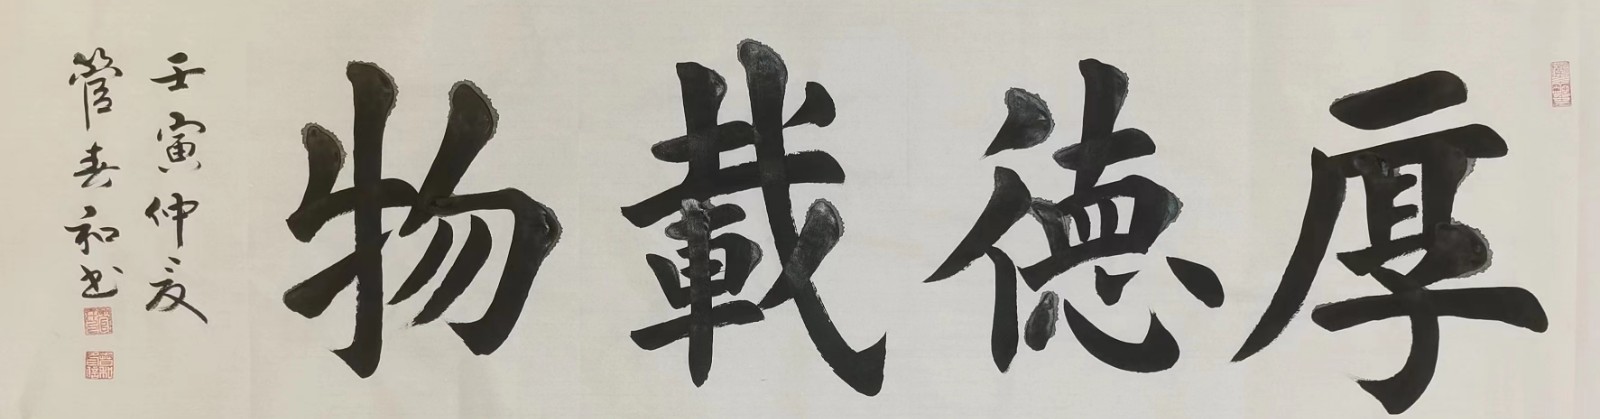 厚德載物
壬寅仲夏
管春和书